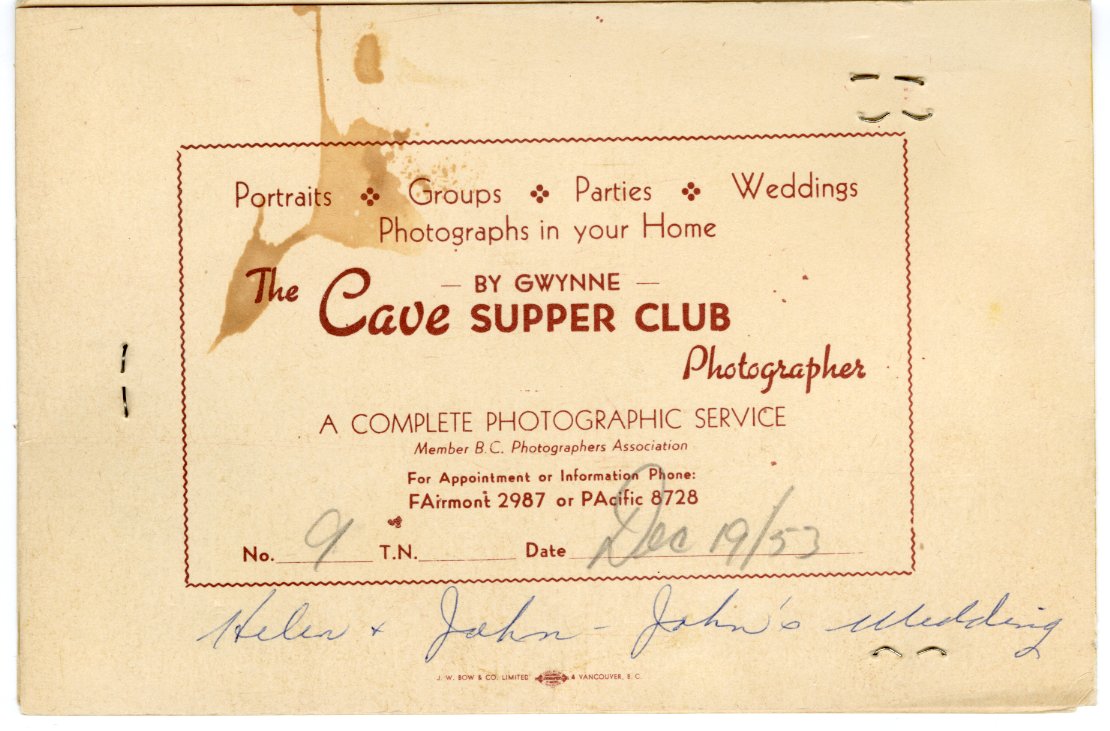 Portraits ❖ Groups ❖ Parties ❖ Weddings
Photographs in your Home
The Cave — BY GWYNNE — SUPPER CLUB
Photographer
A COMPLETE PHOTOGRAPHIC SERVICE
Member B.C. Photographers Association
For Appointment or Information Phone:
FAirmont 2987 or PAcific 8728
No. 9 T.N. Date Dec 19/53
Helen + John - John's Wedding
J. W. BOW & CO. LIMITED VANCOUVER, B. C.